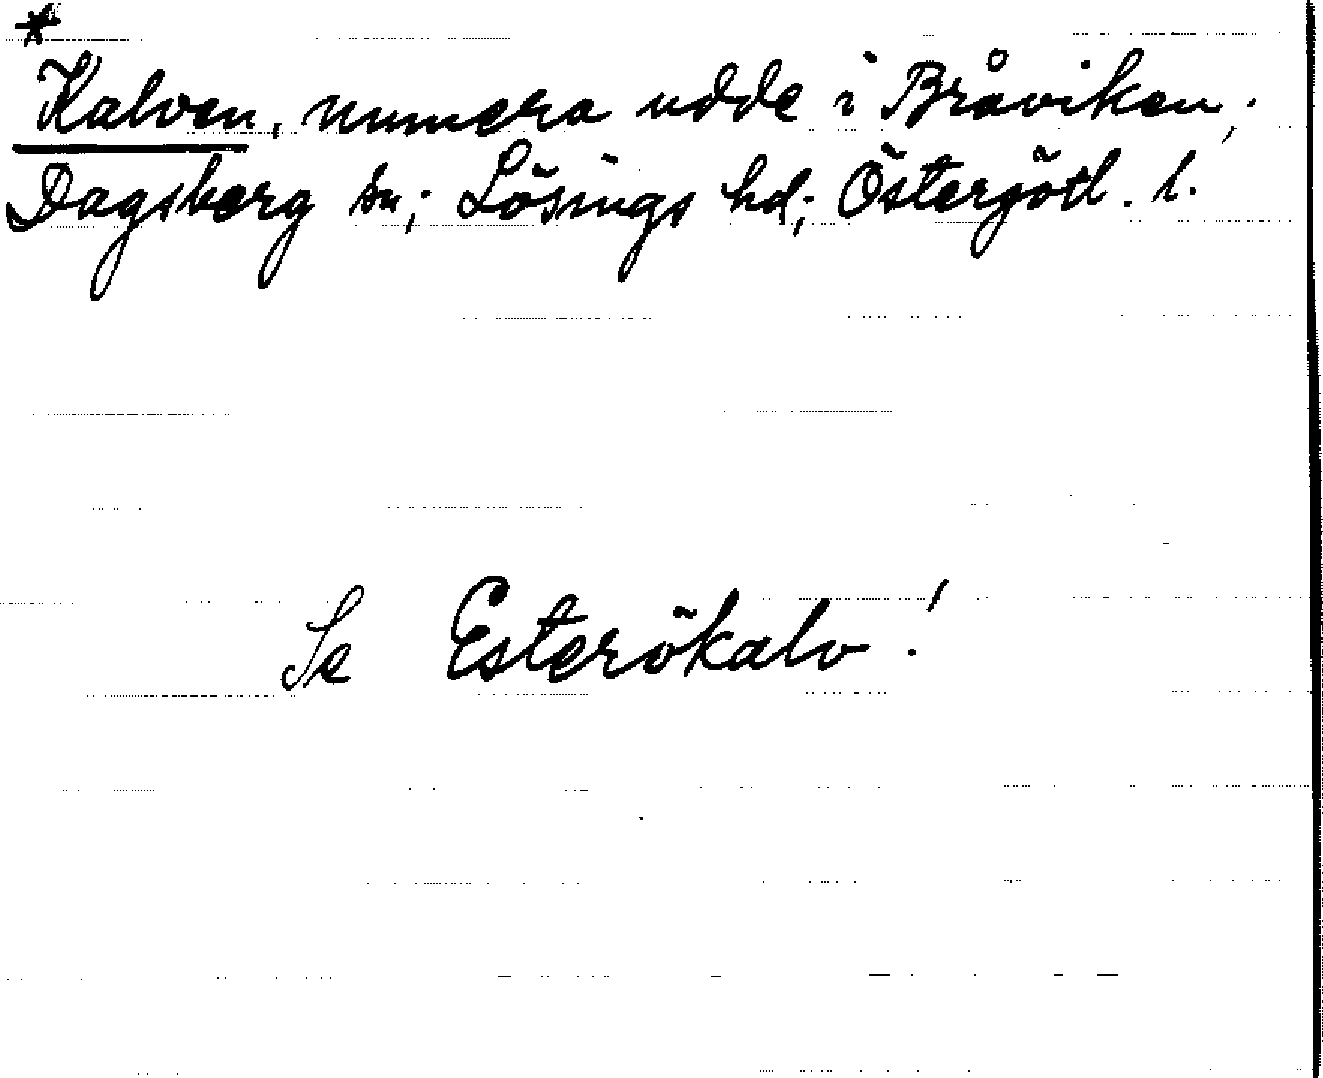 *
Kalven, numera udde i Bråviken;
Dagsberg sn; Lösings hd; Östergötl. l.
Se Esterökalv!